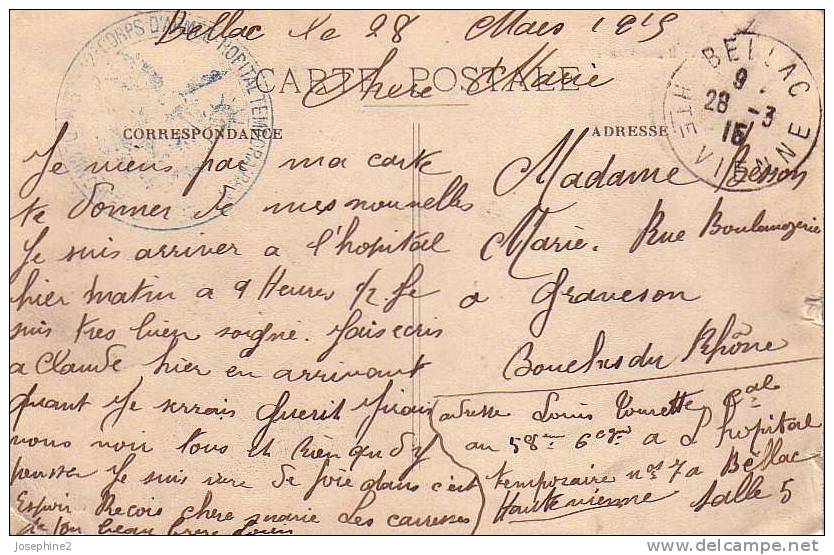 Bellac le 28 Mars 1915
CARTE POSTALE
Chere Marie
CORRESPONDANCE
Je viens par ma carte
te donner de mes nouvelles
Je suis arriver a l'hopital
hier matin a 9 Heures 1/2 Je
suis tres bien soigné. J'ais ecris
a Claude hier en arrivant
quant Je serrais Guerit J'irais
vous voir tous et rien qu'a y
penser Je suis ivre de joie dans c'est
Espoir Recois chere marie Les caresses
de ton beau frere Louis
ADRESSE
Madame Besson
Marie. Rue Boulangerie
a Graveson
Bouches du Rhône
adresse Louis Tourette Cal
au 58eme 6e Cgnie a L'hopital
temporaire nos 7 a Bellac
Haute vienne Salle 5
BELLAC
9
28 -3
15
HTE VIENNE
CORPS D'ARMÉE HOPITAL TEMPORAIRE
© Josephine2
delcampe.net